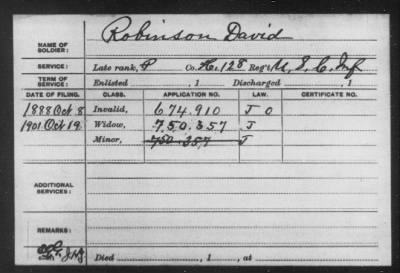 Robinson David
NAME OF SOLDIER:
SERVICE: Late rank, P Co. H. 128 Reg't U.S.C. Inf
TERM OF SERVICE: Enlisted , 1 Discharged , 1
DATE OF FILING. CLASS. APPLICATION NO. LAW. CERTIFICATE NO.
1888 Oct 8 Invalid, 674.910 J O
1901 Oct 19 Widow, 750.357 J
Minor, 750.357 J
ADDITIONAL SERVICES:
REMARKS:
Died , 1 , at